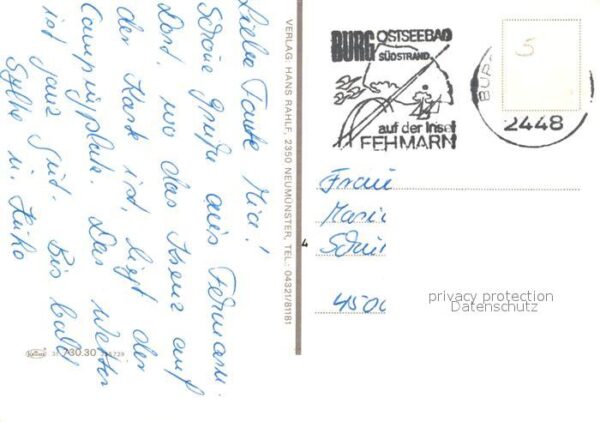 Liebe Tante Mia!
Schöne Grüße aus Fehmarn.
Dort, wo das Kreuz auf
der Karte ist, liegt der
Campingplatz. Das Wetter
ist ganz gut. Bis bald
Sylke u. Heiko
VERLAG: HANS RAHLF, 2350 NEUMÜNSTER, TEL.: 04321/81181
730.30
BURG OSTSEEBAD
SÜDSTRAND
auf der Insel
FEHMARN
BUR
2448
5
4
Frau
Mari
Schu
4500
privacy protection
Datenschutz